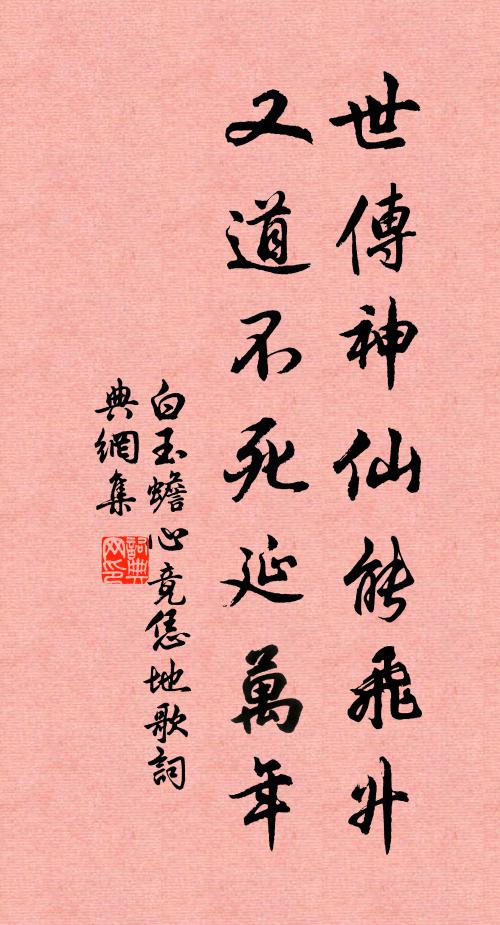 世傳神仙能飛升
又道不死延萬年
白玉蟾必竟恁地歌詞
典網集
詞典
网印